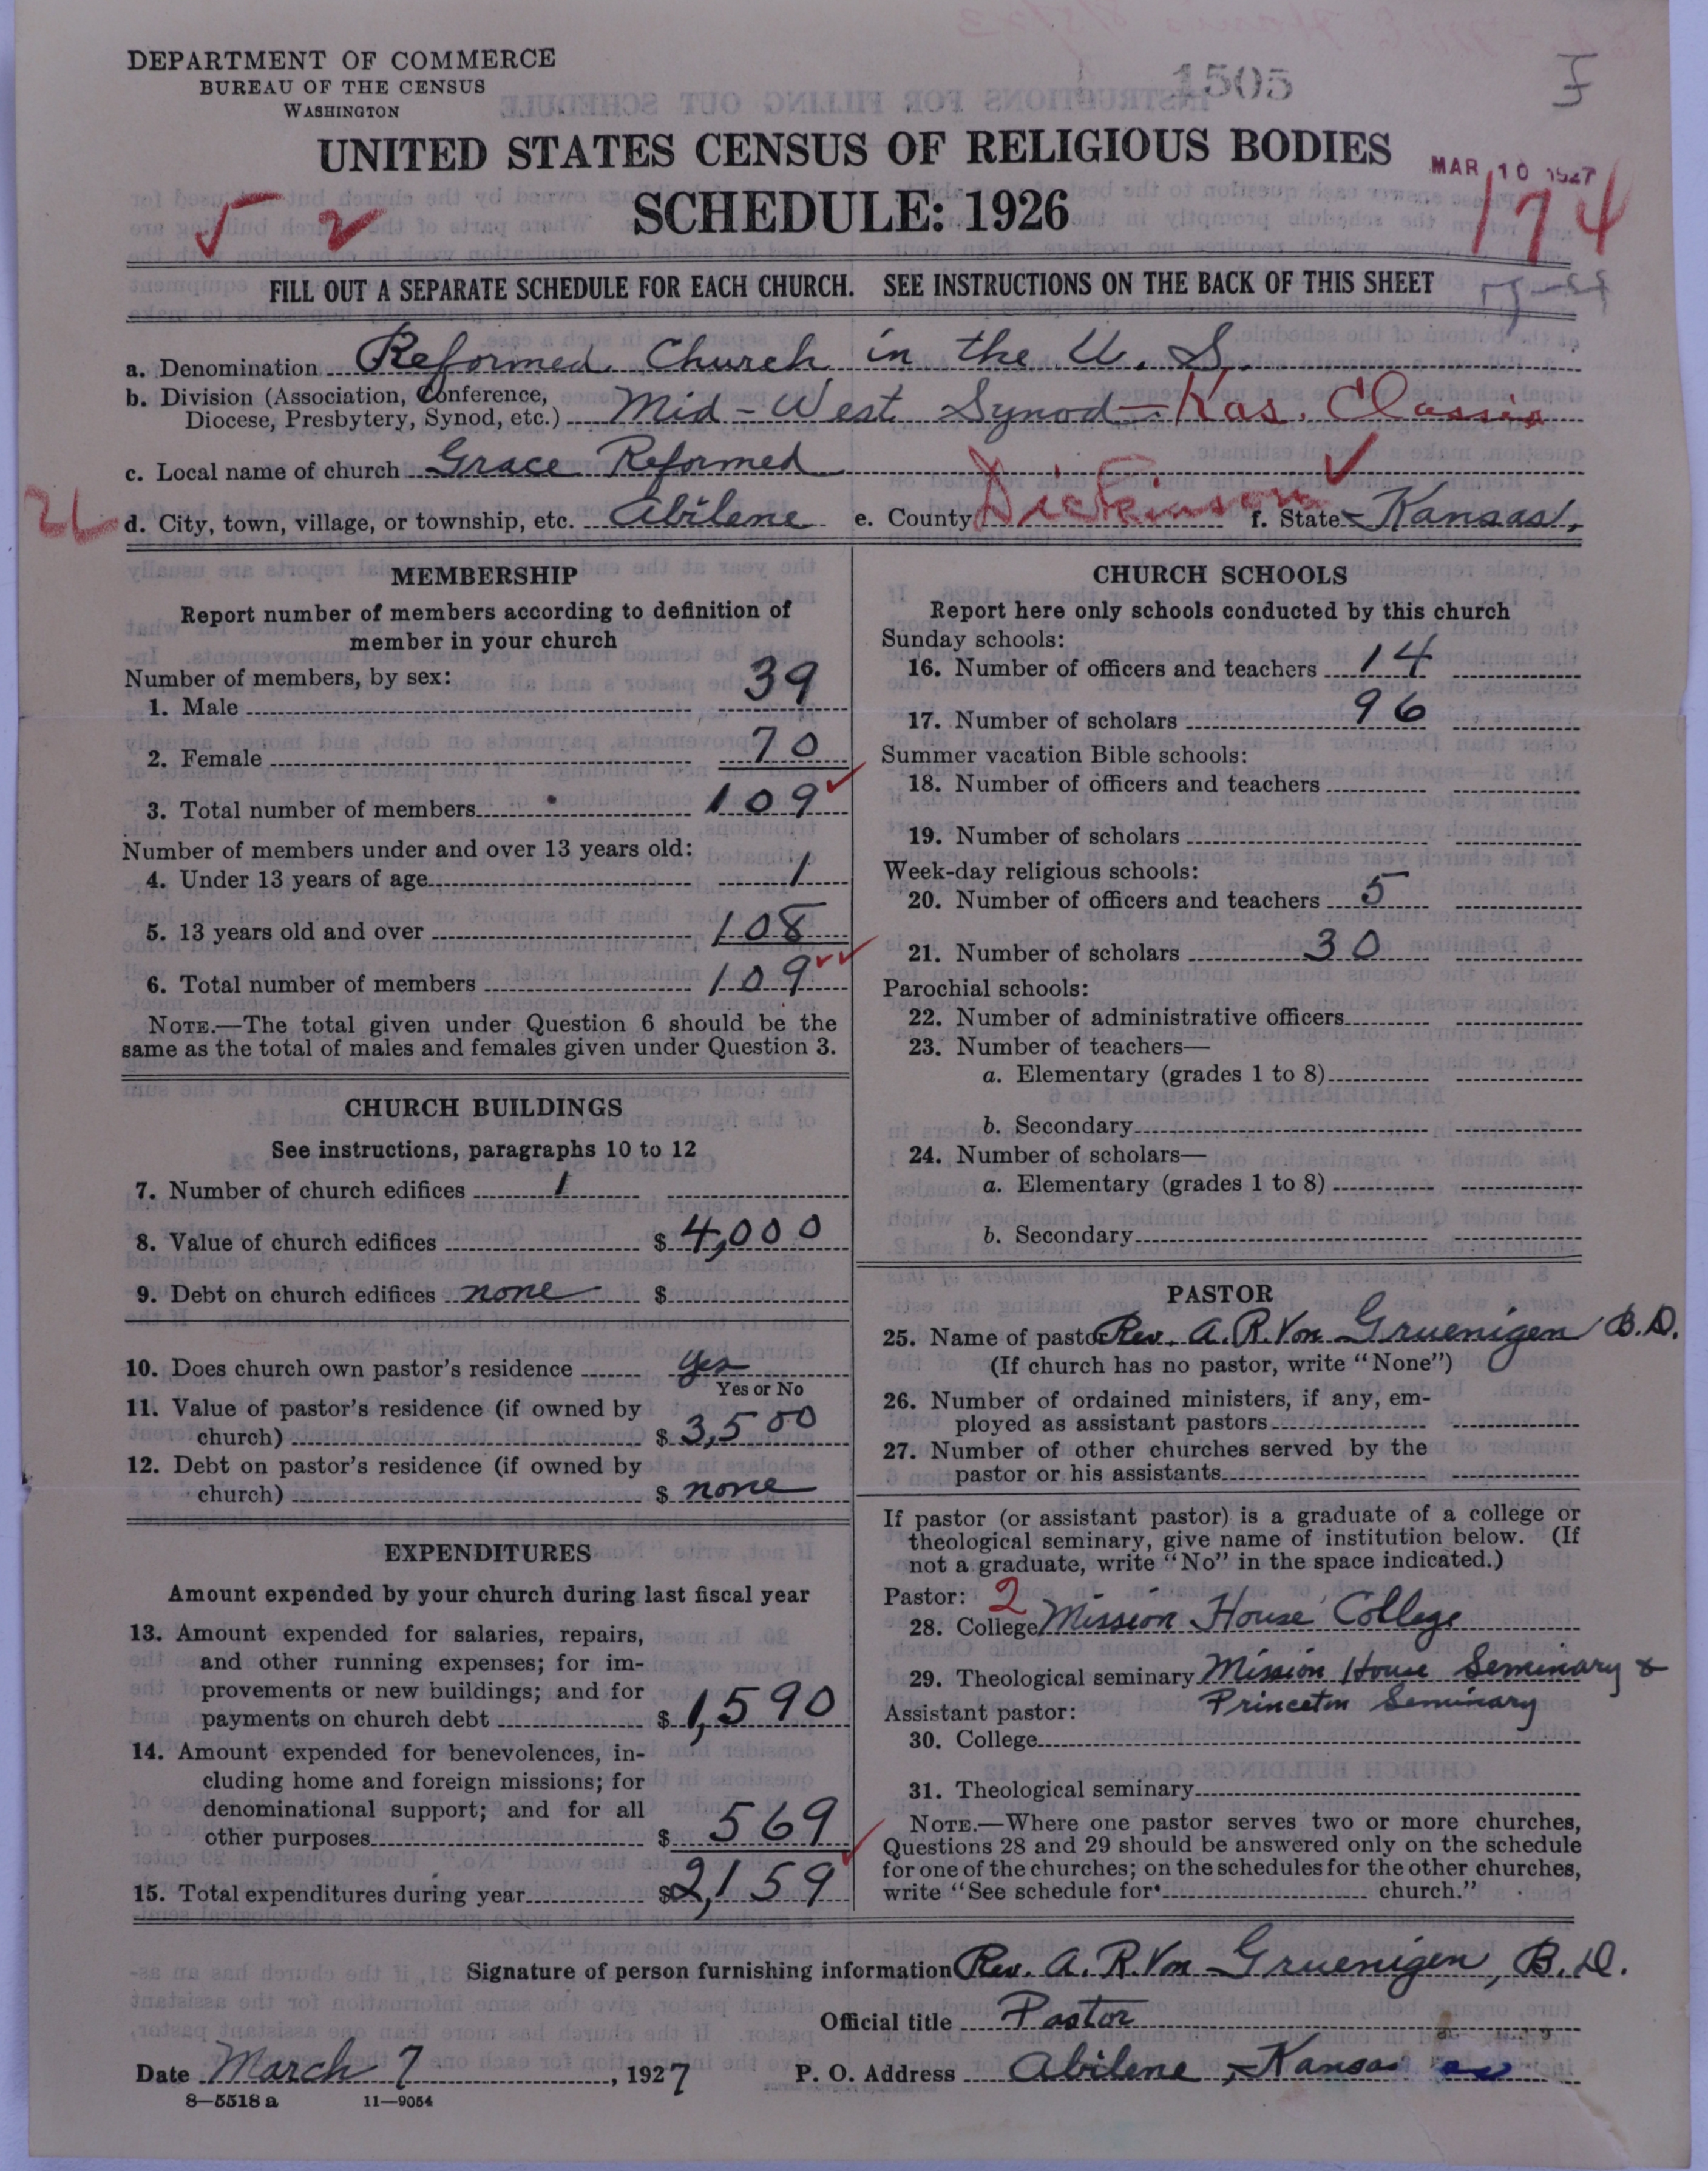 DEPARTMENT OF COMMERCE
BUREAU OF THE CENSUS
WASHINGTON
1505
UNITED STATES CENSUS OF RELIGIOUS BODIES
MAR 10 1927
SCHEDULE: 1926
174
FILL OUT A SEPARATE SCHEDULE FOR EACH CHURCH. SEE INSTRUCTIONS ON THE BACK OF THIS SHEET
a. Denomination Reformed Church in the U. S.
b. Division (Association, Conference,
Diocese, Presbytery, Synod, etc.) Mid-West Synod - Kas. Classis
c. Local name of church Grace Reformed
d. City, town, village, or township, etc. Abilene e. County Dickinson f. State Kansas,
MEMBERSHIP
Report number of members according to definition of
member in your church
Number of members, by sex:
1. Male 39
2. Female 70
3. Total number of members 109
Number of members under and over 13 years old:
4. Under 13 years of age 1
5. 13 years old and over 108
6. Total number of members 109
NOTE.—The total given under Question 6 should be the
same as the total of males and females given under Question 3.
CHURCH BUILDINGS
See instructions, paragraphs 10 to 12
7. Number of church edifices 1
8. Value of church edifices $ 4,000
9. Debt on church edifices none $
10. Does church own pastor's residence yes
Yes or No
11. Value of pastor's residence (if owned by
church) $ 3,500
12. Debt on pastor's residence (if owned by
church) $ none
EXPENDITURES
Amount expended by your church during last fiscal year
13. Amount expended for salaries, repairs,
and other running expenses; for im-
provements or new buildings; and for
payments on church debt $ 1,590
14. Amount expended for benevolences, in-
cluding home and foreign missions; for
denominational support; and for all
other purposes $ 569
15. Total expenditures during year $ 2,159
CHURCH SCHOOLS
Report here only schools conducted by this church
Sunday schools:
16. Number of officers and teachers 14
17. Number of scholars 96
Summer vacation Bible schools:
18. Number of officers and teachers
19. Number of scholars
Week-day religious schools:
20. Number of officers and teachers 5
21. Number of scholars 30
Parochial schools:
22. Number of administrative officers
23. Number of teachers—
a. Elementary (grades 1 to 8)
b. Secondary
24. Number of scholars—
a. Elementary (grades 1 to 8)
b. Secondary
PASTOR
25. Name of pastor Rev. A. R. Von Gruenigen B.D.
(If church has no pastor, write "None")
26. Number of ordained ministers, if any, em-
ployed as assistant pastors
27. Number of other churches served by the
pastor or his assistants
If pastor (or assistant pastor) is a graduate of a college or
theological seminary, give name of institution below. (If
not a graduate, write "No" in the space indicated.)
Pastor: 2
28. College Mission House College
29. Theological seminary Mission House Seminary &
Princeton Seminary
Assistant pastor:
30. College
31. Theological seminary
NOTE.—Where one pastor serves two or more churches,
Questions 28 and 29 should be answered only on the schedule
for one of the churches; on the schedules for the other churches,
write "See schedule for church."
Signature of person furnishing information Rev. A. R. Von Gruenigen, B.D.
Official title Pastor
Date March 7, 1927 P. O. Address Abilene, Kansas
8—5518 a 11—9054